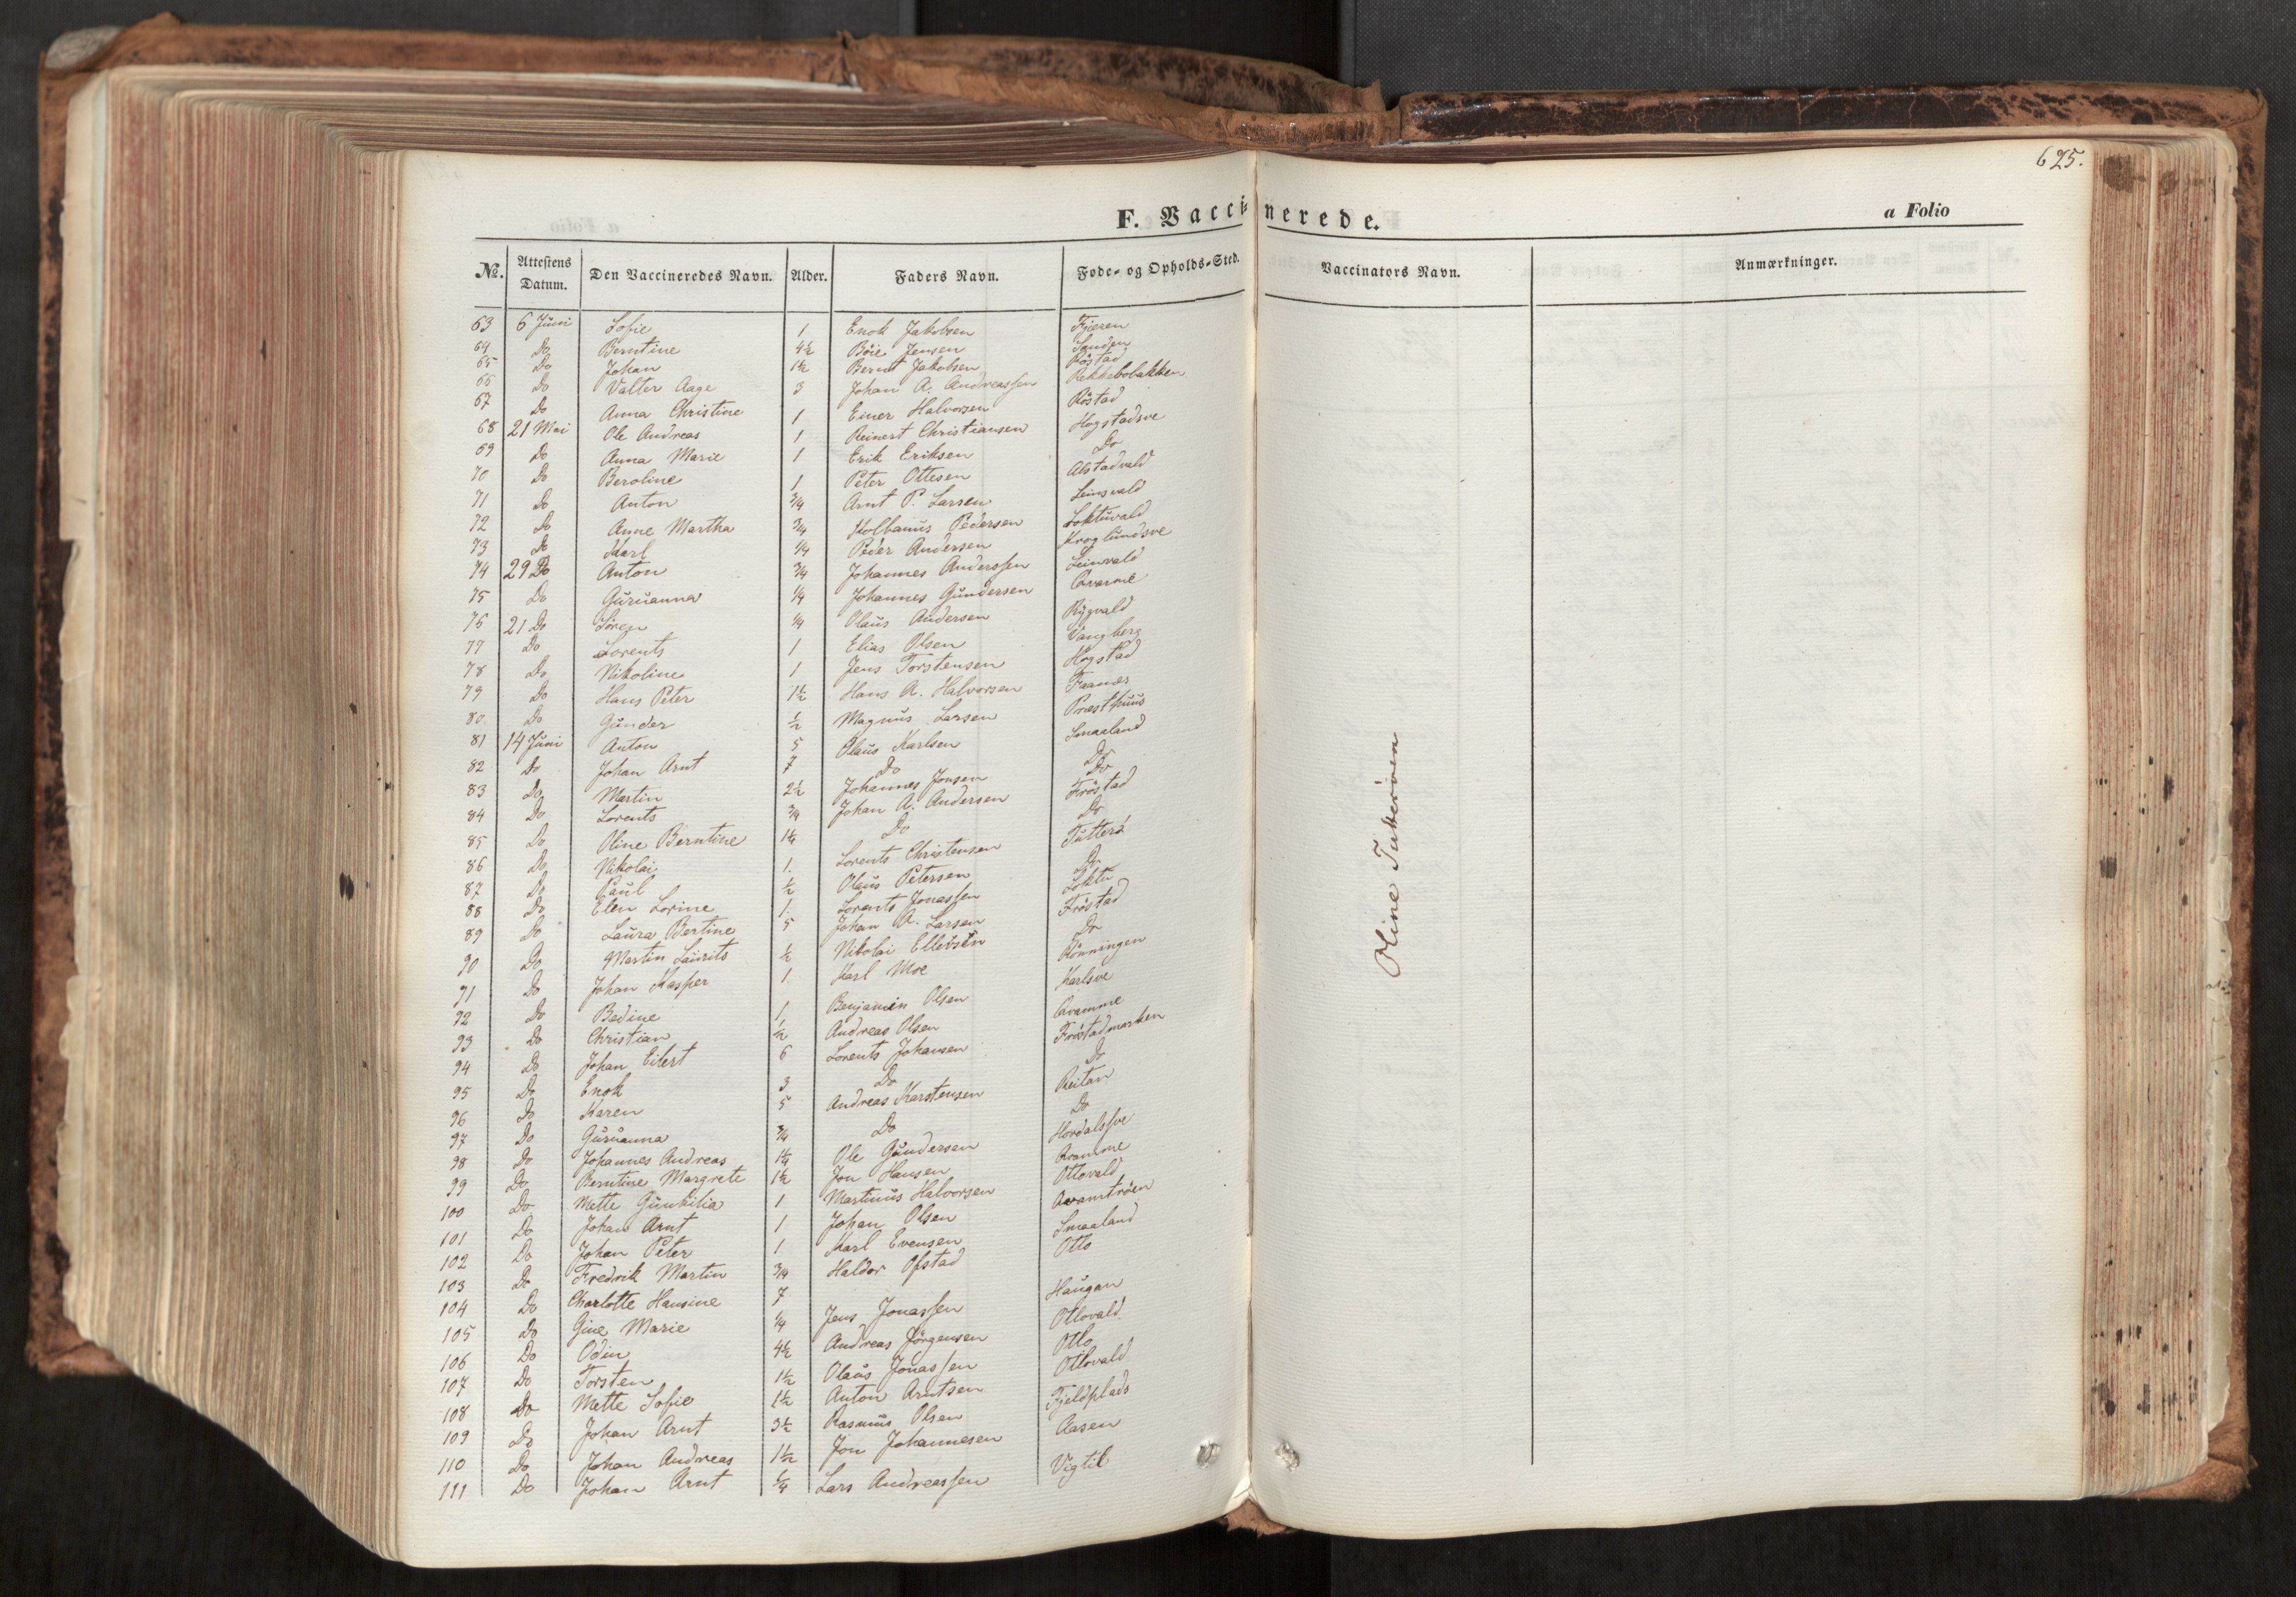 625.
F. Vaccinerede.
a Folio
No. Attestens Datum. Den Vaccineredes Navn. Alder. Faders Navn. Føde- og Opholds-Sted. Vaccinators Navn. Anmærkninger.
63 6 Juni Sofie 1 Enok Jakobsen Fjæren
64 Do Berntine 4½ Böie Jensen Sanden
65 Do Johan 1½ Bernt Jakobsen Röstad
66 Do Valter Aage 3 Johan A. Andreassen Rekkebobakken
67 Do Anna Christine 1 Einer Halvorsen Röstad
68 21 Mai Ole Andreas 1 Reinert Christiansen Hogstadsve
69 Do Anna Marie 1 Erik Eriksen Do
70 Do Beroline 1 Peter Ottesen Alstadvald
71 Do Anton ¾ Arnt P. Larsen Leinsvald
72 Do Anne Martha ¾ Kolbanus Pedersen Loktuvald
73 Do Karl ¼ Peder Andersen Kroglundsve
74 29 Do Anton ¾ Johannes Anderssen Leinvald
75 Do Guruanna ¼ Johannes Gundersen Qvarme
76 21 Do Sören ¼ Olaus Andersen Rygvald
77 Do Lorents 1 Elias Olsen Vangberg
78 Do Nikoline 1 Jens Torstensen Hogstad
79 Do Hans Peter 1½ Hans A. Halvorsen Faanes
80 Do Gunder ½ Magnus Larsen Præsthuus
81 14 Juni Anton 5 Olaus Karlsen Smaaland
82 Do Johan Arnt 7 Do Do
83 Do Martin 2½ Johannes Jonsen Do
84 Do Lorents ¾ Johan A. Andersen Fröstad
85 Do Oline Berntine 1¼ Do Do
86 Do Nikolai 1. Lorents Christensen Tutterö
87 Do Paul ½ Olaus Petersen Do
88 Do Elen Lorine 1. Lorents Jonassen Loktu
89 Do Laura Bertine 5 Johan A. Larsen Fröstad
90 Do Martin Laurits ½ Nikolai Ellevsen Do
91 Do Johan Kasper 1 Karl Moe Rönningen
92 Do Bedine 1 Benjamin Olsen Karlsve
93 Do Christian ½ Andreas Olsen Qvamme
94 Do Johan Eilert 6 Lorents Johansen Fröstadmarken
95 Do Enok 3 Do Do
96 Do Karen 5 Andreas Karstensen Reitan
97 Do Guruanna ¾ Do Do
98 Do Johannes Andreas 1¼ Ole Gundersen Hordalsve
99 Do Berntine Margrete 1½ Jon Hansen Qvamme
100 Do Mette Gunhilia 1 Martinus Halvorsen Ottovald
101 Do Johan Arnt 1 Johan Olsen Qvamtröen
102 Do Johan Peter 1 Karl Evensen Smaaland
103 Do Fredrik Martin ¾ Haldor Ofstad Otto
104 Do Charlotte Hansine 7
105 Do Gine Marie ¼ Jens Jonassen Haugan
106 Do Odin 4½ Andreas Jörgensen Ottovald
107 Do Torsten 1½ Olaus Jonassen Otto
108 Do Mette Sofie 1½ Anton Arntsen Ottovald
109 Do Johan Arnt 3½ Rasmus Olsen Fjeldplads
110 Do Johan Andreas 1½ Jon Johannesen Aasen
111 Do Johan Arnt ¼ Lars Andreassen Vigtil
Oline Tuteröen